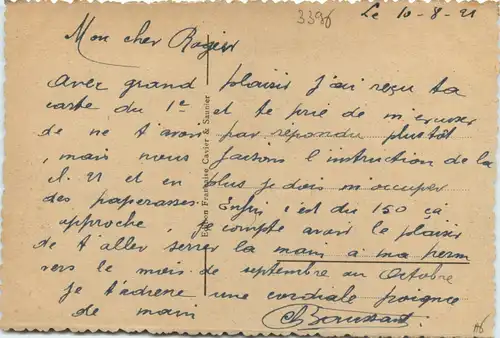 3396
Le 10-8-21
Mon cher Roger
Avec grand plaisir j'ai reçu ta
carte du 1e et te prie de m'excuser
de ne t'avoir pas repondu plustôt
, mais nous faisons l'instruction de la
et en plus je dois m'occuper
des paperasses. Enfin c'est du 150 ça
approche, je compte avoir le plaisir
de t'aller serrer la main a ma perm
vers le mois de septembre ou Octobre
je t'adresse une cordiale poignee
de main
Edition Française Cavier & Saunier